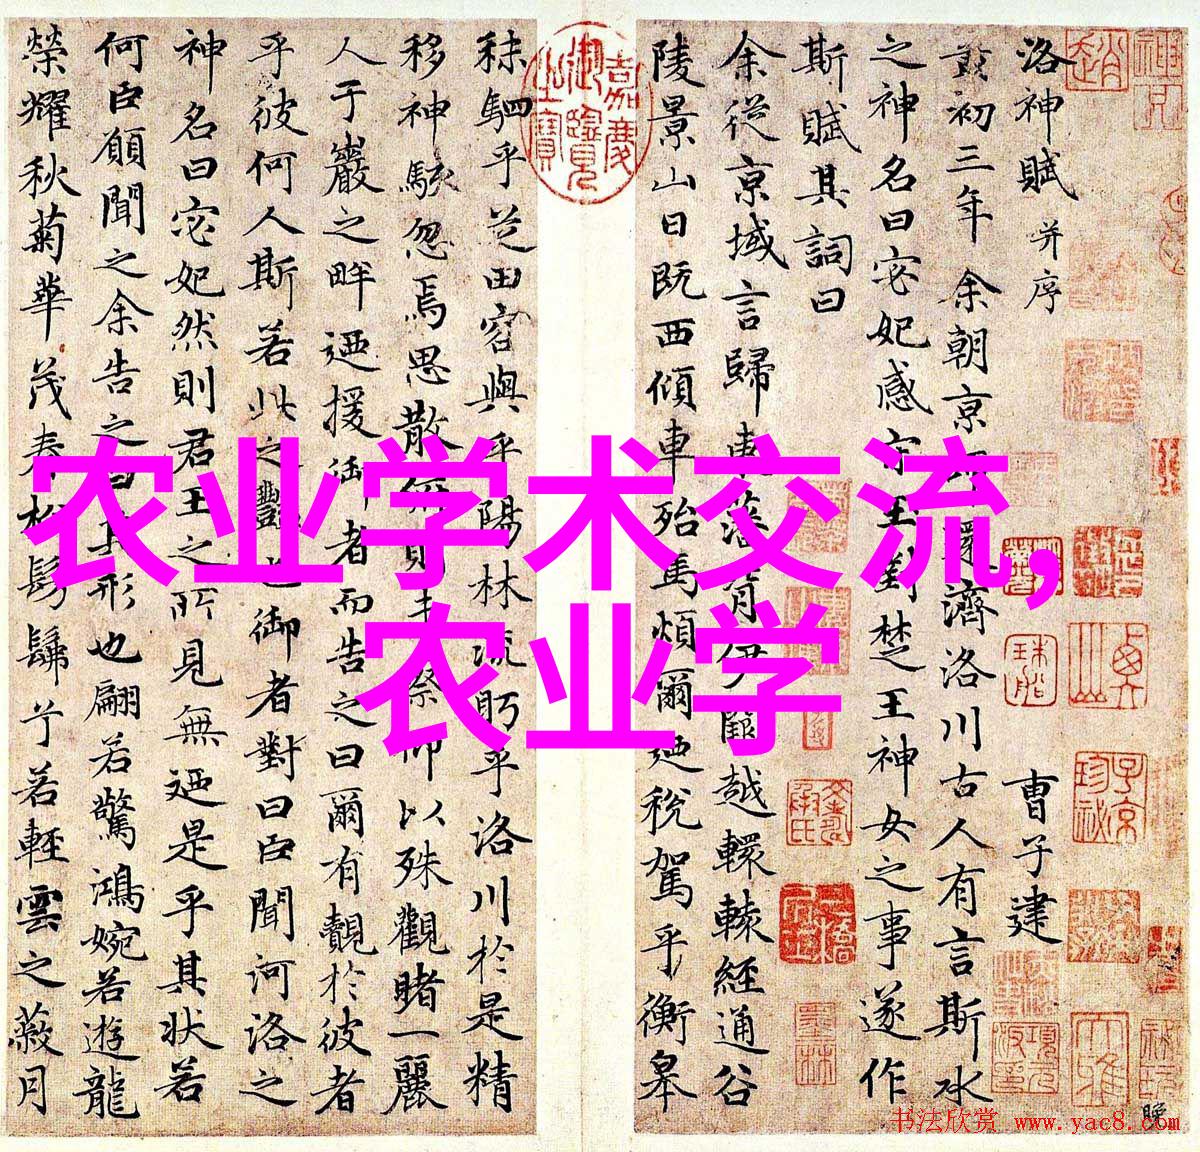 洛神賦 并序
曹子建
黃初三年余朝京師還濟洛川古人有言斯水
之神名曰宓妃感宋玉對楚王神女之事遂作
斯賦其詞曰
余從京域言歸東藩背伊闕越轘轅經通谷
陵景山日既西傾車殆馬煩爾迺稅駕乎衡皋
秣駟乎芝田容與乎陽林流眄乎洛川於是精
移神駭忽焉思散俯則未察仰以殊觀睹一麗
人于巖之畔迺援御者而告之曰爾有覿於彼者
乎彼何人斯若此之豔也御者對曰臣聞河洛之
神名曰宓妃然則君王之所見無迺是乎其狀若
何臣願聞之余告之曰其形也翩若驚鴻婉若遊龍
榮耀秋菊華茂春松髣髴兮若輕雲之蔽月
嘉慶御覽之寶
农业学术交流,
农业学
书法欣赏 www.yac8.com